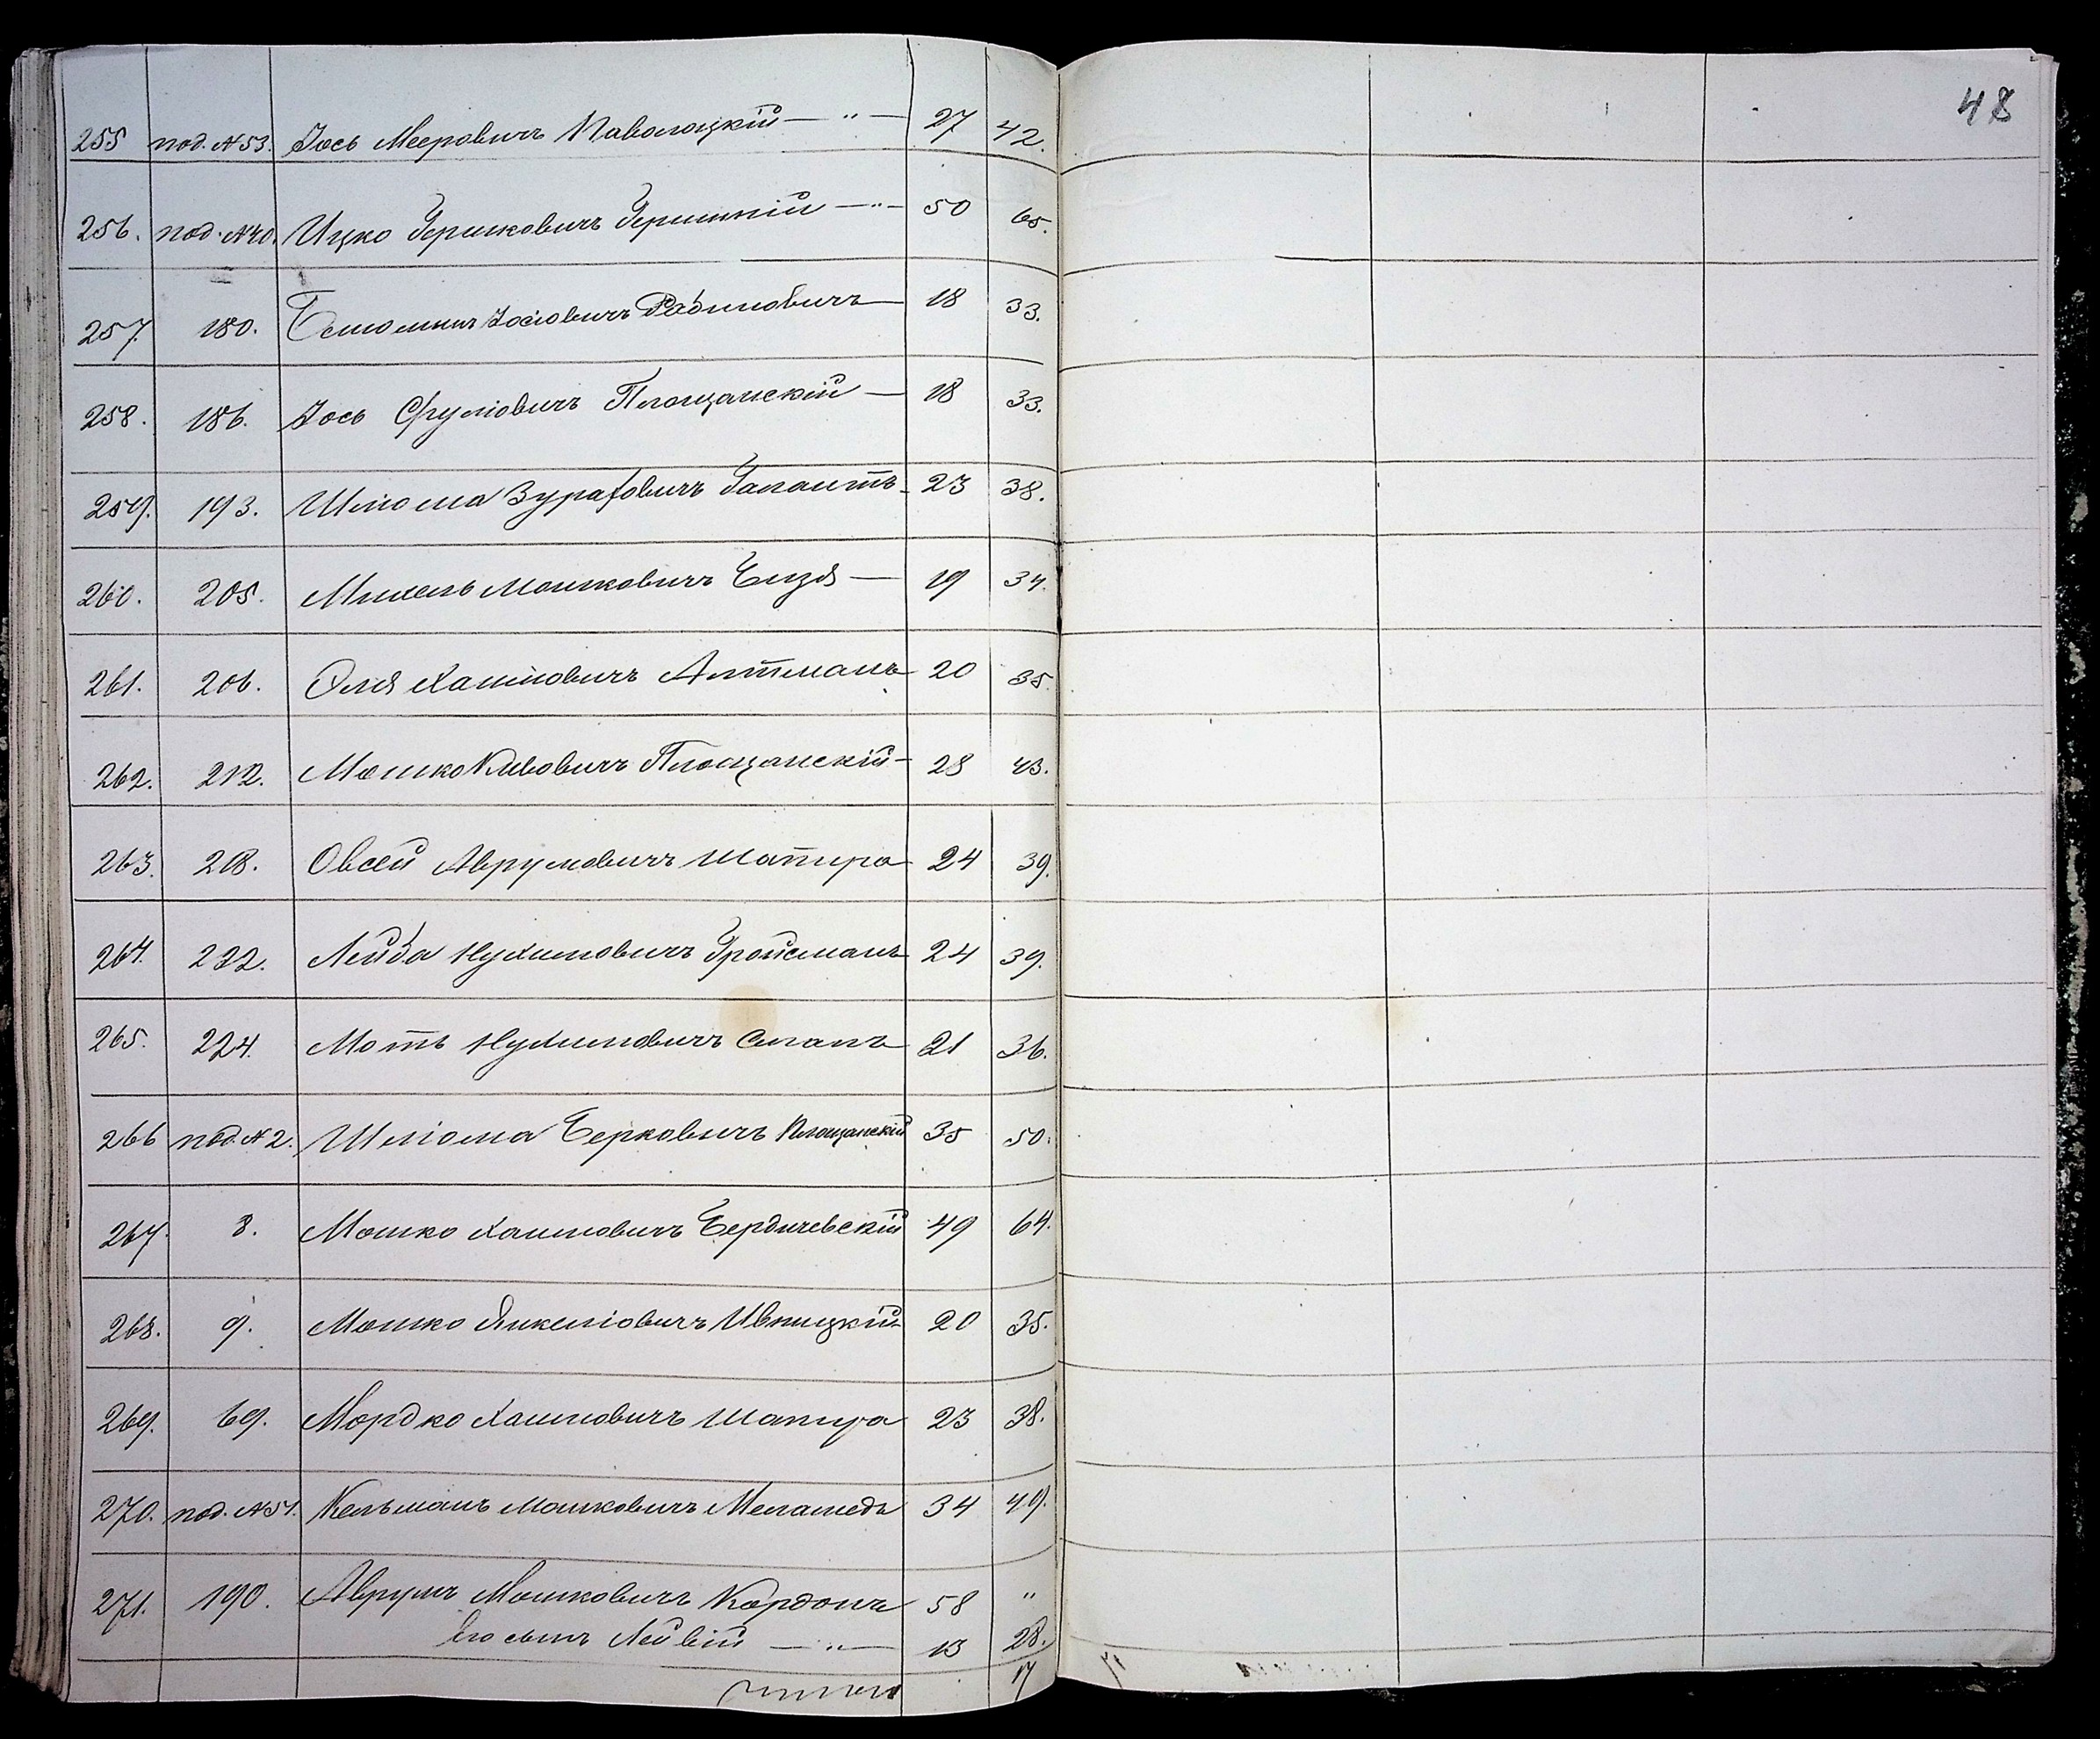 48
255 под. №53. Іось Мееровичъ Паволоцкій — " — 27 42.
256. под. №40. Ицко Гершковичъ Гершкій — " — 50 65.
257. 180. Беніоминъ Іосіовичъ Рабиновичъ — 18 33.
258. 186. Іось Сруліовичъ Площанскій — 18 33.
259. 193. Шліома Галантъ 23 38.
260. 205. Михель Мошковичъ — 19 34.
261. 206. Хаимовичъ Алтманъ 20 35.
262. 212. Мошко Кивовичъ Площанскій — 28 43.
263. 218. Овсей Аврумовичъ Шапира 24 39.
264. 222. Лейба Нухимовичъ Гройсманъ 24 39.
265. 224. Моть Нухимовичъ 21 36.
266 под. №2. Шліома Берковичъ Площанскій 35 50.
267. 8. Мошко Хаимовичъ Бердичевскій 49 64.
268. 9. Мошко Янкеліовичъ Ивницкій 20 35.
269. 69. Мордко Хаимовичъ Шапира 23 38.
270. под. №51. Кельманъ Мошковичъ Меламедъ 34 49.
271. 190. Аврумъ Мошковичъ Кордонъ 58 "
Его сынъ — " — 13 28.
17